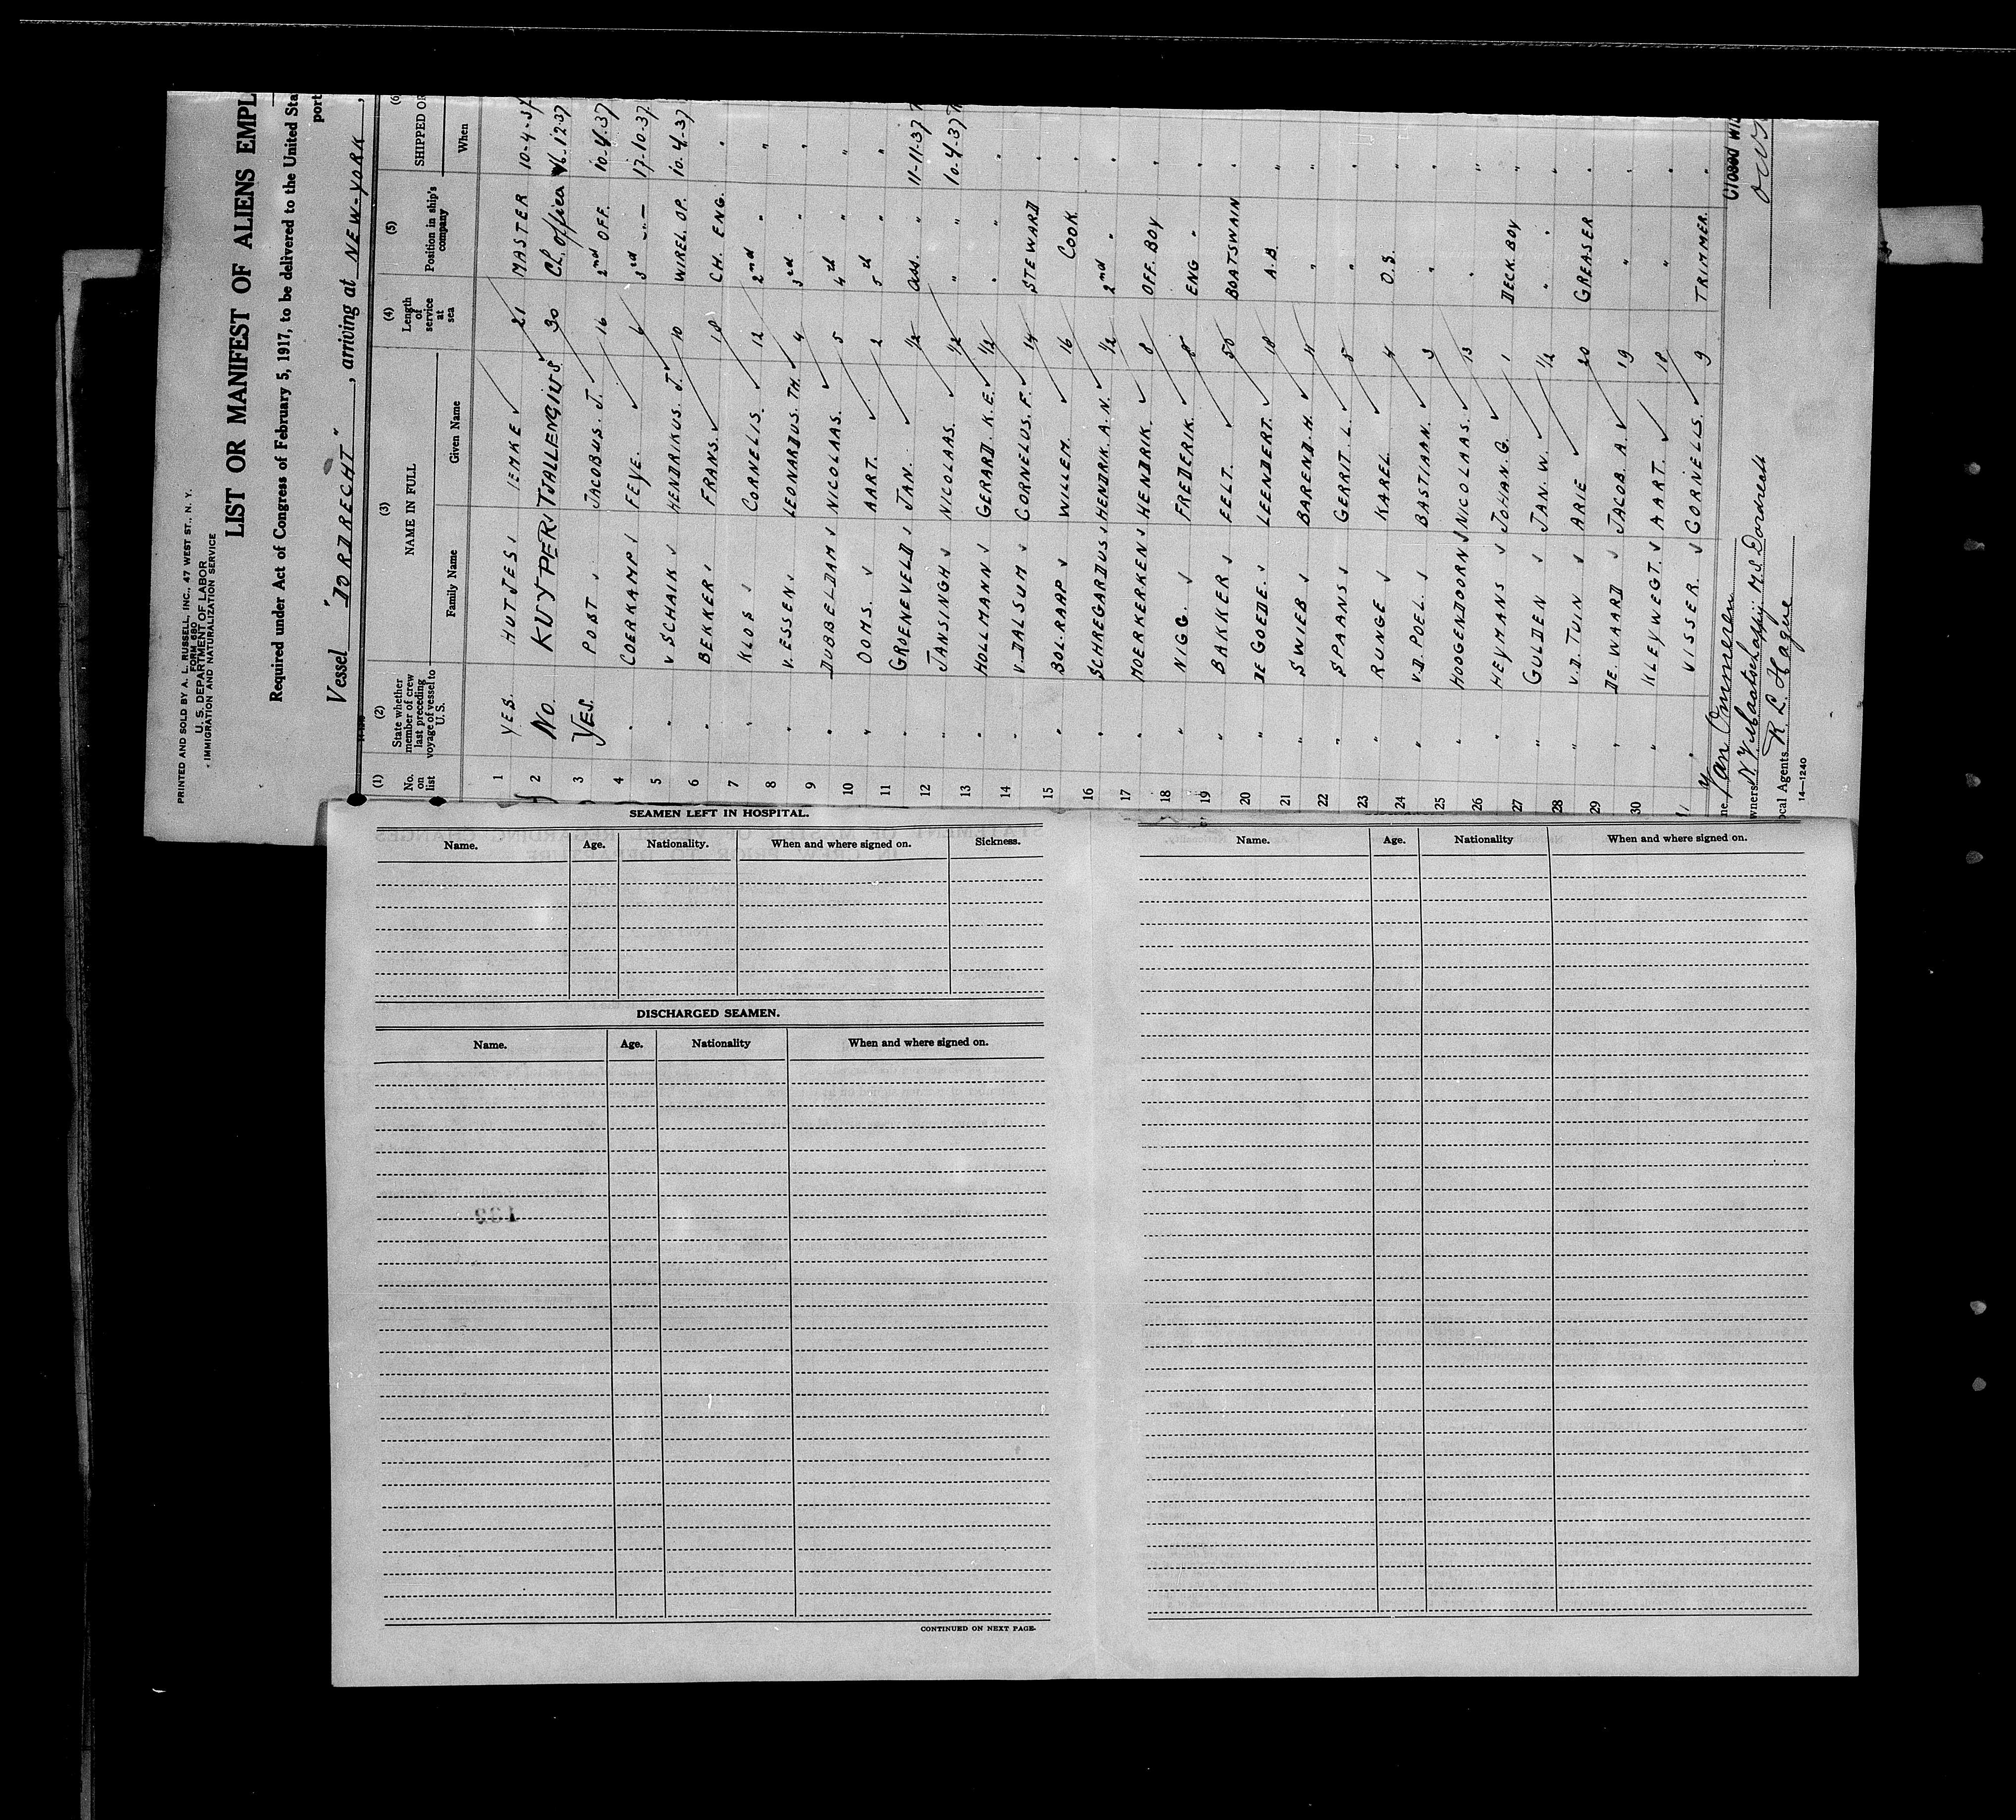 PRINTED AND SOLD BY A. L. RUSSELL, INC., 47 WEST ST., N. Y.
FORM 680
U. S. DEPARTMENT OF LABOR
IMMIGRATION AND NATURALIZATION SERVICE
LIST OR MANIFEST OF ALIENS EMPL
Required under Act of Congress of February 5, 1917, to be delivered to the United Sta
port
Vessel "DORDRECHT", arriving at NEW-YORK,
(1) (2) (3) (4) (5) (6)
No. on list State whether member of crew last preceding voyage of vessel to U. S. NAME IN FULL Length of service at sea Position in ship's company SHIPPED OR
Family Name Given Name When
1 YES. HUTJES IEMKE 21 MASTER 10-4-37
2 NO. KUYPERI TJALLENGIUS 30 Ch. officer 16-12-37
3 YES. POST JACOBUS. J. 16 2nd OFF. 10-4-37
4 " COERKAMP FEYE. 6 3rd -"- 17-10-37
5 " v SCHAIK HENDRIKUS. J. 10 WIREL. OP. 10-4-37
6 " BEKKER FRANS. 18 CH. ENG. "
7 " KLOS CORNELIS. 12 2nd " "
8 " V. ESSEN LEONARDUS. TH. 4 3rd " "
9 " DUBBELDAM NICOLAAS. 5 4th " "
10 " OOMS. AART. 2 5th " "
11 " GROENEVELD JAN. 1/2 ass. " 11-11-37
12 " JANSINGH NICOLAAS. 1/2 " " 10-4-37
13 " HOLLMANN GERARD K.E. 1/2 " " "
14 " V. DALSUM CORNELUS. F. 14 STEWARD "
15 " BOL. RARP WILLEM. 16 COOK "
16 " SCHREGARDUS HENDRIK. A. N. 1/2 2nd " "
17 " MOERKERKEN HENDRIK. 8 OFF. BOY "
18 " NIGG. FREDERIK. 8 ENG " "
19 " BAKKER EELT. 50 BOATSWAIN "
20 " DE GOEDE. LEENDERT. 18 A.B. "
21 " SWIEB BAREND. H. 11 " "
22 " SPAANS GERRIT L. 5 " "
23 " RUNGE KAREL 4 O.S. "
24 " v.D. POEL. BASTIAAN. 3 " "
25 " HOOGENDOORN NICOLAAS. 13 " "
26 " HEYMANS JOHAN. G. 1 DECK. BOY "
27 " GULDEN JAN. W. 1/2 " " "
28 " V.D. TUIN ARIE 20 GREASER "
29 " DE. WAARD JACOB. A. 19 " "
30 " KLEYWEGT. AART. 18 " "
" VISSER. CORNELIS. 9 TRIMMER. "
Closed
Van Ommeren
wners N V Maatschappij M.S. Dordrecht
ocal Agents R. L. Hague
14—1240
SEAMEN LEFT IN HOSPITAL.
Name. Age. Nationality. When and where signed on. Sickness.
DISCHARGED SEAMEN.
Name. Age. Nationality When and where signed on.
CONTINUED ON NEXT PAGE.
Name. Age. Nationality When and where signed on.